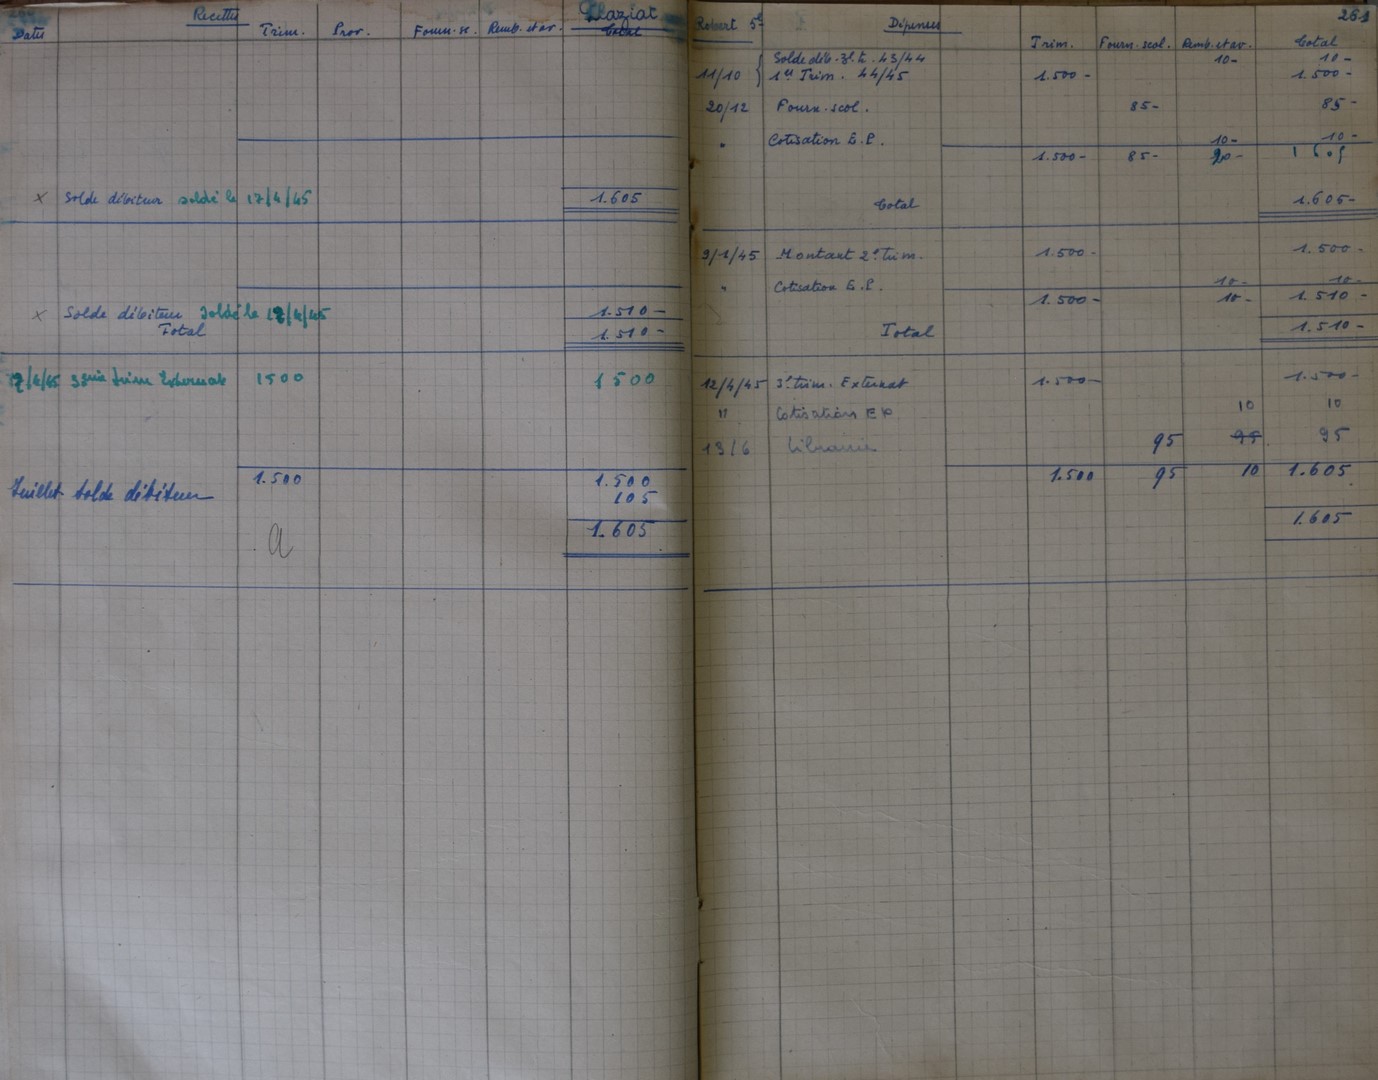 Recettes
Dates Trim. Prov. Fourn. sc. Remb. et av. Total
× Solde débiteur soldé le 17/4/45 1.605
× Solde débiteur soldé le 12/4/45 1.510 -
Total 1.510 -
12/4/45 3ème trim Externat 1500 1500
1.500 1.500
Juillet Solde débiteur 105
a 1.605
Robert 5e Dépenses 261
Trim. Fourn. scol. Remb. et av. Total
Solde déb. 3e t. 43/44 10 - 10 -
11/10 1er Trim. 44/45 1.500 - 1.500 -
20/12 Fourn. scol. 85 - 85 -
" Cotisation E.P. 10 - 10 -
1.500 - 85 - 20 - 1605
Total 1.605 -
9/1/45 Montant 2e trim. 1.500 - 1.500 -
" Cotisation E.P. 10 - 10 -
1.500 - 10 - 1.510 -
Total 1.510 -
12/4/45 3e trim. Externat 1.500 - 1.500 -
" Cotisation EP 10 10
13/6 Librairie 95 95 95
1.500 95 10 1.605
1.605